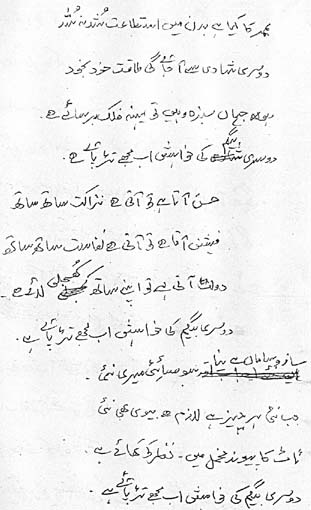 عمر کا کیا ہے بدن میں استطاعت نہ
دوسری شادی سے آ جائے گی طاقت خود بخود
جہاں سبزہ وہیں تو مینہ فلک برسائے ہے
دوسری بیگم کی خواہش اب مجھے تڑپائے ہے۔
حسن آتا ہے تو آتی ہے نزاکت ساتھ ساتھ
فیشن آتا ہے تو آتی ہے نفاست ساتھ ساتھ
دولت آتی ہے تو اپنے ساتھ کھجلی لائے ہے۔
دوسری بیگم کی خواہش اب مجھے تڑپائے ہے۔
ساز و ساماں ہے نیا سوسائٹی میری نئی
جب نئی ہر چیز ہے لازم ہے بیوی بھی نئی
ٹاٹ کا پیوند مخمل میں۔ نظر کو کھائے ہے
دوسری بیگم کی خواہش اب مجھے تڑپائے ہے۔